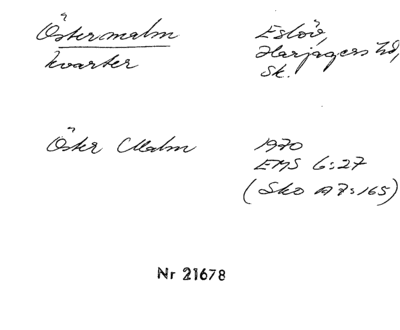 Östermalm
kvarter
Eslöv,
Harjagers hd,
Sk.
Öster Malm
1970
EMS 6:27
(Sko A7:165)
Nr 21678